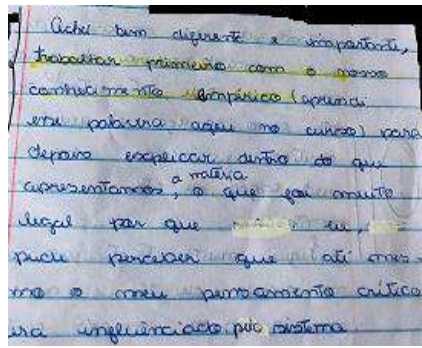 Achei bem diferente e importante,
trabalhar primeiro com o nosso
conhecimento empírico (aprendi
esse palavra aqui no curso) para
depois explicar dentro do que
apresentamos, a matéria, o que foi muito
legal por que eu,
pude perceber que até mes-
mo o meu pensamento crítico
era influênciado pelo sistema